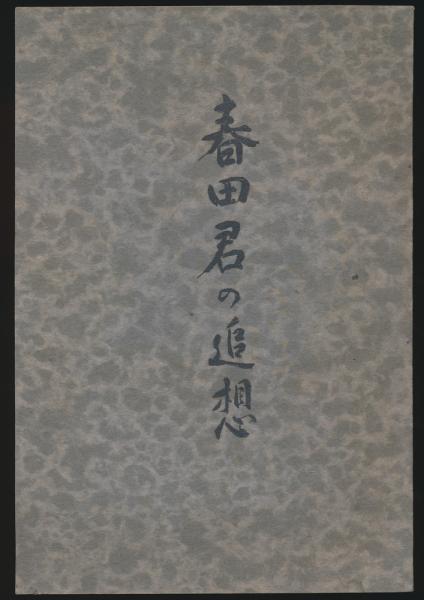 春田君の追想